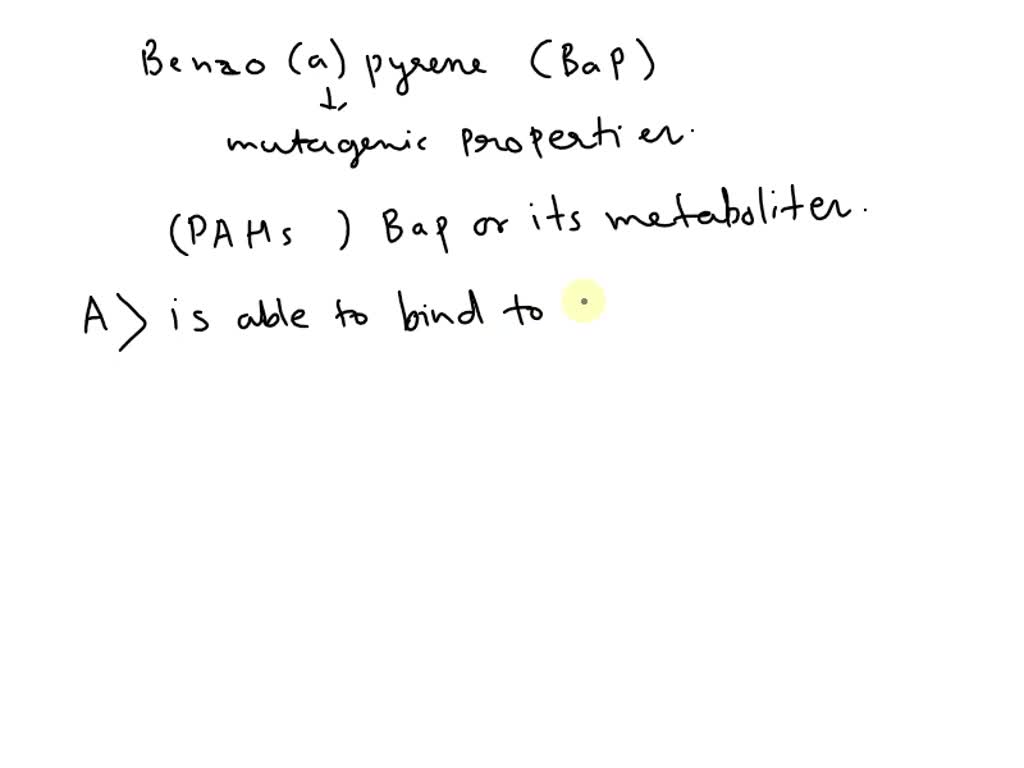 Benzo (a) pyrene (BaP)
↓
mutagenic properties.
(PAHs ) Bap or its metabolites.
A> is able to bind to